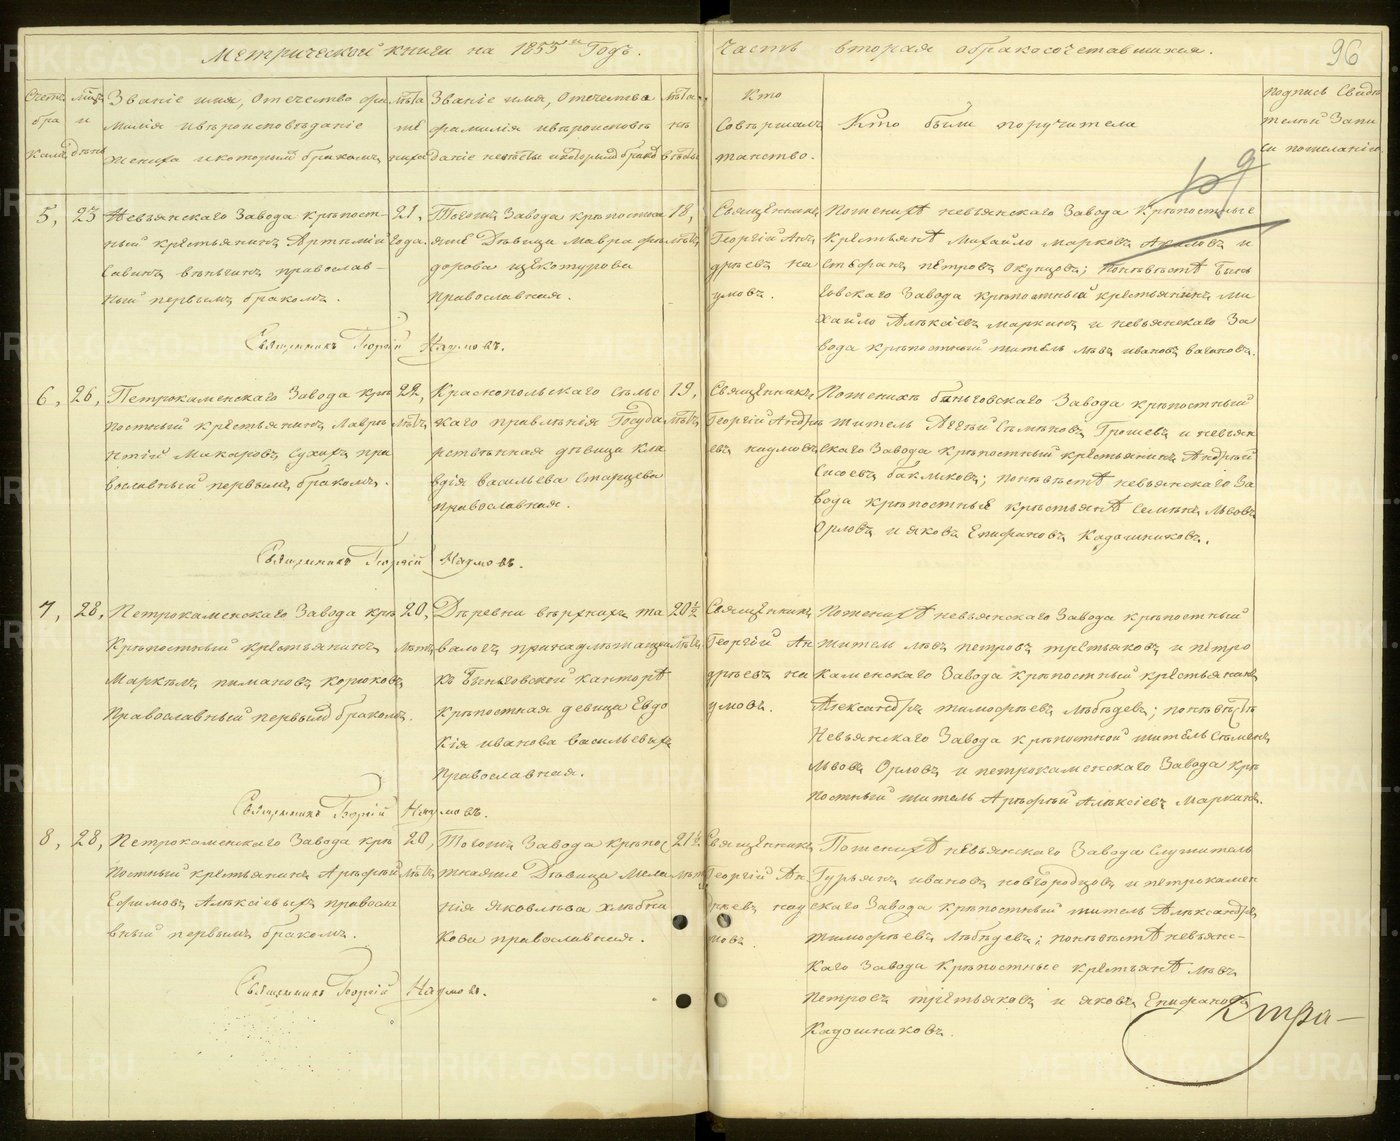 Метрической книги на 1855й Годъ.
Часть вторая обракосочетавшихся.
96
Счетъ бра каmъ
Мцъ и день
Званіе имя, Отечество фа
милія ивѣроисповѣданіе
жениха икоторымъ бракомъ
Лѣта же ниха
Званіе имя, Отечество
фамилія ивѣроисповѣ
даніе невѣсты икоторымъ бракомъ
Лѣта не вѣсты
Кто
Совѣршалъ
таинство.
Кто были поручители
подпись Свидѣ
телей Запи
си пожеланію.
5,
23
Невьянскаго Завода крѣпост-
ный крестьянинъ Артемій
Савинъ православ-
ный первымъ бракомъ.
21,
года.
Тогожъ Завода крѣпостная
Дѣвица Мавра Фе
дорова Щекотурова
православная.
18,
лѣтъ
Священникъ
Георгій Ан
дрѣевъ На
умовъ.
Поженихѣ невьянскаго Завода Крѣпостные
крестьянѣ Михайло Марковъ Акиловъ и
Стефанъ Петровъ Окунцовъ; поневѣстѣ Бынь
говскаго Завода крѣпостный крестьянинъ Ми
хайло Алѣксіевъ Маркинъ и невьянскаго За
вода крѣпостный житель Левъ Ивановъ Вагановъ.
Священникъ Георгій Наумовъ.
6,
26,
Петрокаменскаго Завода крѣ
постный крестьянинъ Лаврѣ
нтій Макаровъ Сухихъ пра
вославный первымъ бракомъ.
22,
лѣтъ
Краснопольскаго сѣльс
каго правлѣнія Госуда
рственная дѣвица Кла
вдія Васильева Старцева
православная.
19,
лѣтъ
Священникъ
Георгій Андрѣ
евъ Наумовъ
Поженихѣ быньговскаго Завода крѣпостный
житель Авдѣй Семѣновъ Грошевъ и невьян
скаго Завода крѣпостный крестьянинъ Андрѣй
Сысоевъ баклыковъ; поневѣстѣ невьянскаго За
вода крѣпостные крестьянѣ Семѣнъ Львовъ
Орловъ и яковъ Епифановъ Кадошниковъ.
Священникъ Георгій Наумовъ.
7,
28,
Петрокаменскаго Завода крѣ
Крѣпостный крестьянинъ
Маркѣлъ Пимановъ Корюковъ
Православный первымъ бракомъ.
20,
лѣтъ
Деревни вѣрхнихъ та
валогъ принадлежащая
къ Быньговской канторѣ
крѣпостная девица Евдо
кія Иванова Васильевыхъ
православная.
20½
лѣтъ
Священникъ
Георгій Ан
дрѣевъ На
умовъ.
Поженихѣ невьянскаго Завода крѣпостный
житель Левъ Петровъ трѣтьяковъ и пѣтро
каменскаго Завода крѣпостный крестьянинъ
Александръ тимофѣевъ Лѣбѣдевъ; поневѣстѣ
Невьянскаго Завода крѣпостной житель Сѣменъ
Львовъ Орловъ и петрокаменскаго Завода крѣ
постный житель Арѣфій Алѣксіевъ Маркинъ.
Священникъ Георгій Наумовъ.
8,
28,
Петрокаменскаго Завода крѣ
постный крестьянинъ Арѣфій
Ефимовъ Алѣксіевыхъ правосла
вный первымъ бракомъ.
20,
лѣтъ
Тогожъ Завода крѣпос
Дѣвица Мела
нія Яковлѣва Хлѣбни
кова православная.
21½
лѣтъ
Священникъ
Георгій Ан
дрѣевъ Нау
мовъ.
Поженихѣ невьянскаго Завода Служитель
Гурьянъ Ивановъ новгородцовъ и петрокамен
скаго Завода крѣпостный житель Алѣксандръ
тимофѣевъ Лѣбѣдевъ; поневѣстѣ невьянс-
каго Завода крѣпостные крестьянѣ Левъ
Петровъ трѣтьяковъ и яковъ Епифановъ
Кадошниковъ.
Священникъ Георгій Наумовъ.